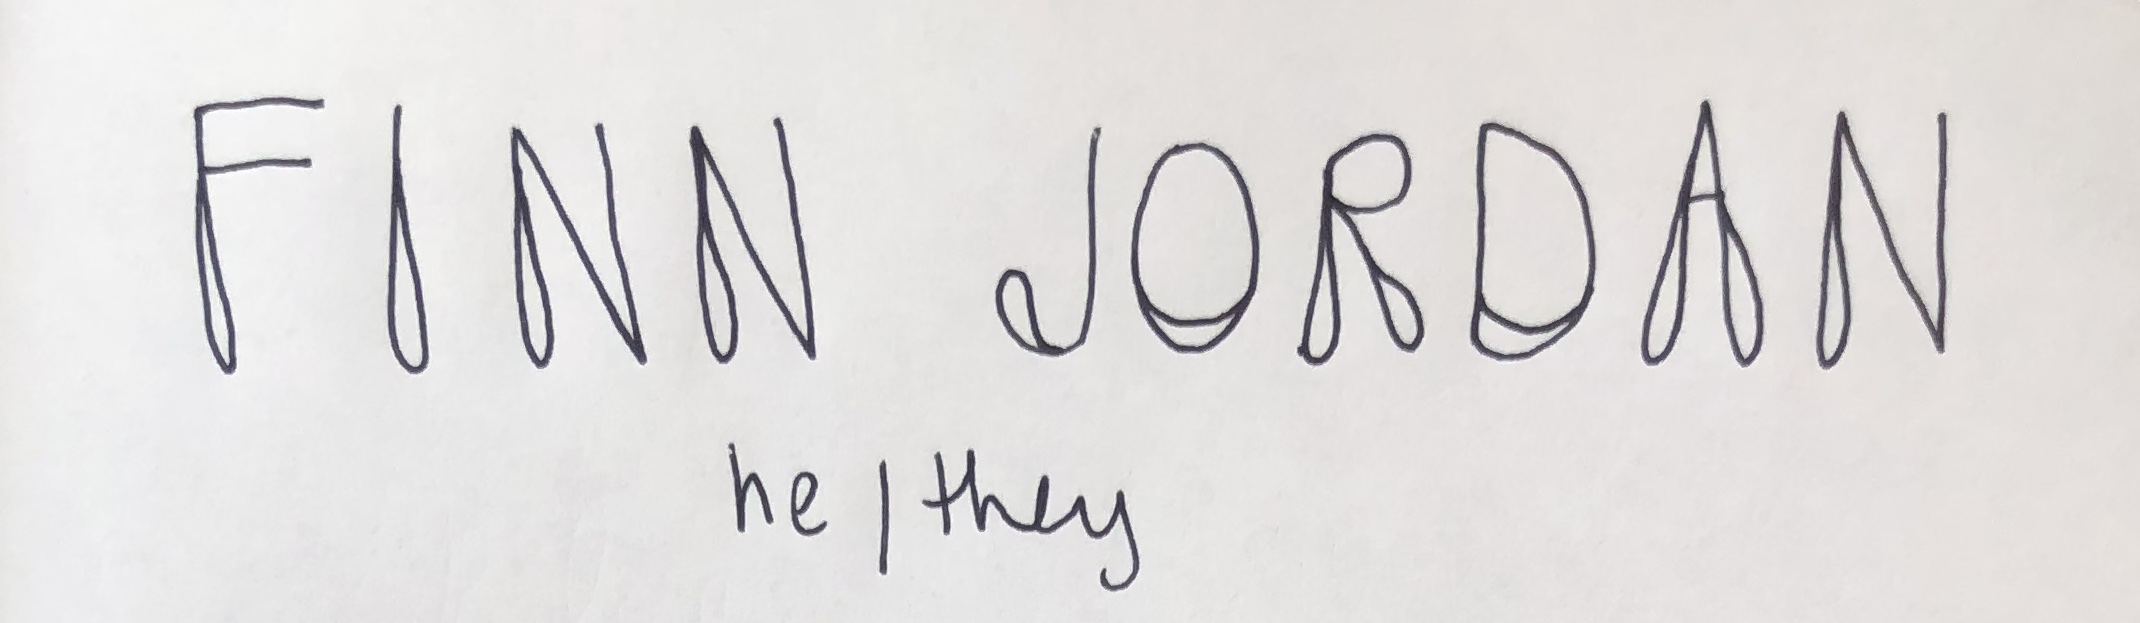 FINN JORDAN
he/they